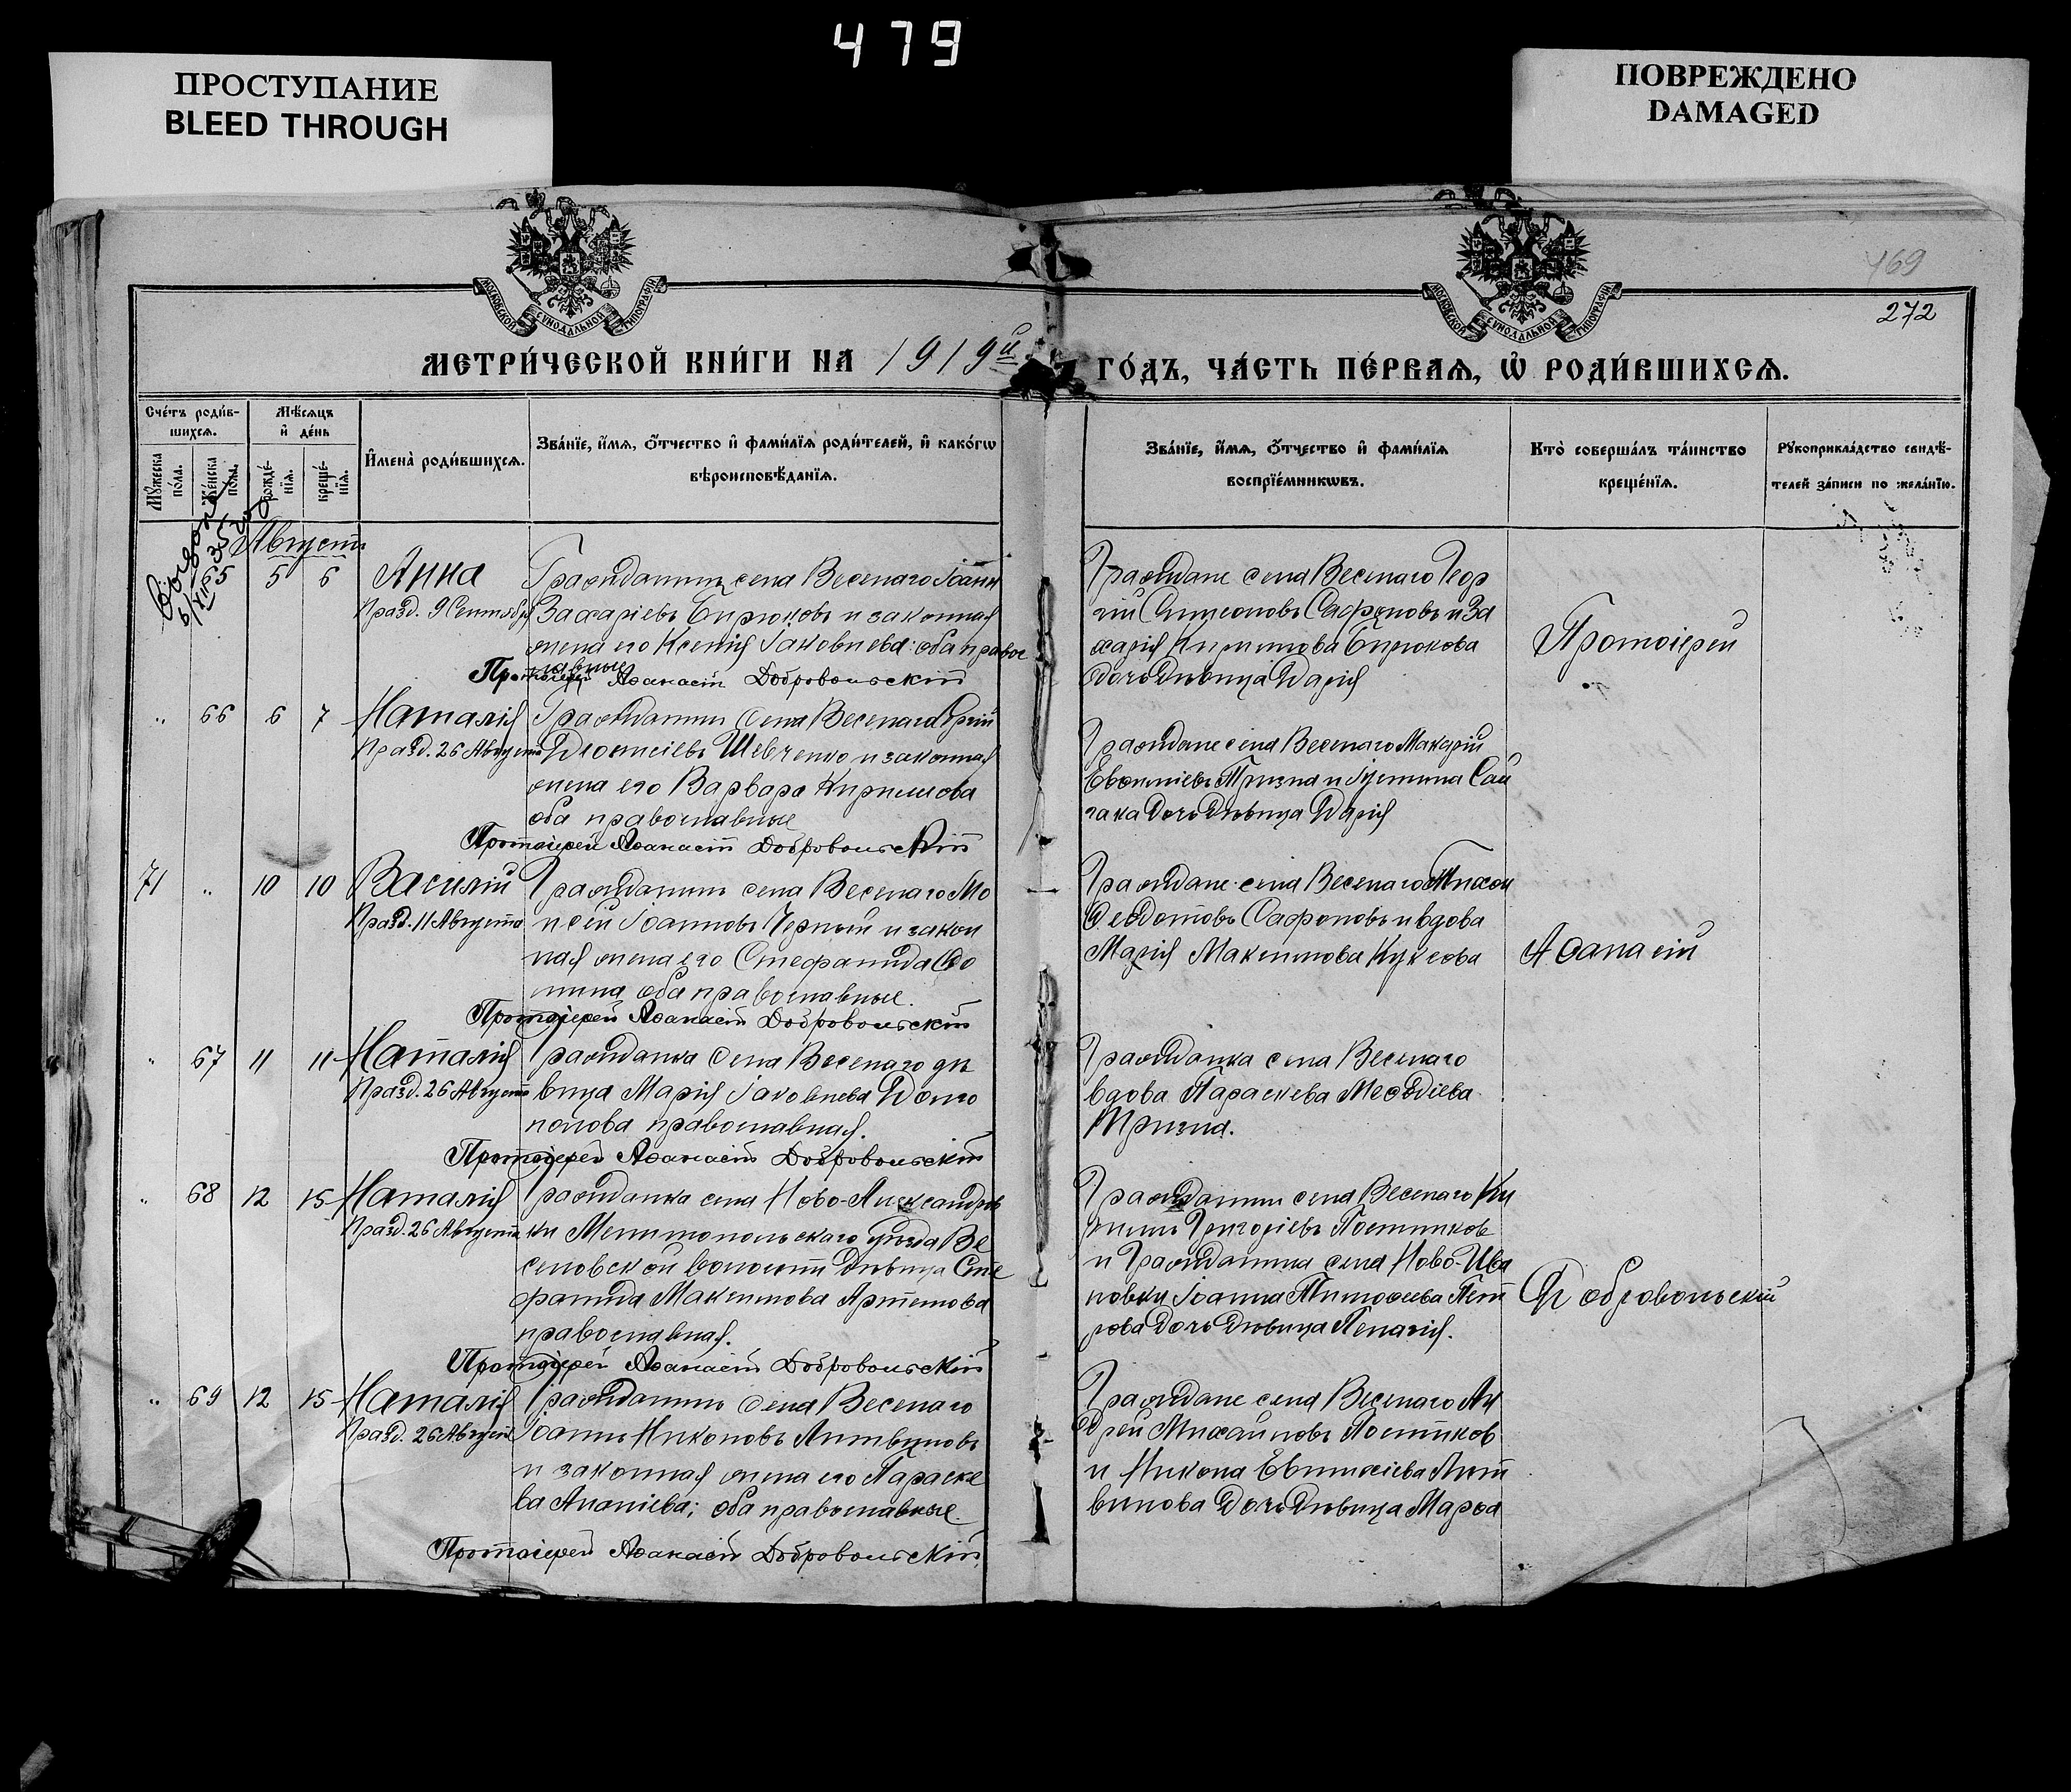 479
ПРОСТУПАНИЕ
BLEED THROUGH
ПОВРЕЖДЕНО
DAMAGED
МОСКОВСКОЙ СѴНОДАЛЬНОЙ ТИПОГРАФІИ
МОСКОВСКОЙ СѴНОДАЛЬНОЙ ТИПОГРАФІИ
469
272
МЕТРИ́ЧЕСКОЙ КНИ́ГИ НА 1919й
ГО́ДЪ, ЧА́СТЬ ПЕ́РВАѦ, Ѡ҆ РОДИ́ВШИХСѦ.
Сче́тъ роди́в-
шихсѧ.
Мꙋ́жеска по́ла.
Же́нска по́ла.
Мѣ́сѧцъ
и҆ де́нь
рожде́-
нїѧ.
креще́-
нїѧ.
И҆мена̀ роди́вшихсѧ.
Зва́нїе, и҆́мѧ, ѻ҆́тчество и҆ фами́лїѧ роди́телей, и҆ како́гѡ
вѣроисповѣ́данїѧ.
Зва́нїе, и҆́мѧ, ѻ҆́тчество и҆ фами́лїѧ
воспрїе́мникѡвъ.
Кто̀ соверша́лъ та́инство
креще́нїѧ.
Рꙋкоприкла́дство свидѣ́-
телей за́писи по жела́нїю.
Августъ
65 5 6 Анна
Празд. 9 Сентября
Гражданинъ села Веселаго Іоаннъ
Захаріевъ Бирюковъ и законная
жена его Ксенія Іаковлева: оба правос
лавные
Протоіерей Аѳанасій Добровольскій
Граждане села Веселаго Геор
гій Симеоновъ Сафоновъ и За
харія Кириллова Бирюкова
дочь Дѣвица Дарія
Протоіерей
" 66 6 7 Наталія
Празд. 26 Августа
Гражданинъ села Веселаго
Діонисіевъ Шевченко и законная
жена его Варвара Кириллова
оба православные
Протоіерей Аѳанасій Добровольскій
Граждане села Веселаго Макарій
Евѳиміевъ Тризна и Іустина Сай
гака дочь Дѣвица Дарія
71 " 10 10 Василій
Празд. 11 Августа
Гражданинъ села Веселаго Мо
исей Іоанновъ Черный и закон
ная жена его Стефанида Ѳо
мина оба православные.
Протоіерей Аѳанасій Добровольскій
Граждане села Веселаго Тихон
Ѳеодотовъ Сафоновъ и вдова
Марія Максимова Куксова
Аѳанасій
" 67 11 11 Наталія
Празд. 26 Августа
Гражданка села Веселаго дѣ
вица Марія Іаковлева Долго
полова православная.
Протоіерей Аѳанасій Добровольскій
Гражданка села Веселаго
вдова Параскева Меѳодіева
Тризна.
" 68 12 15 Наталія
Празд. 26 Августа
Гражданка села Ново-Александров
ки Мелитопольскаго уѣзда Ве
селовской волости Дѣвица Сте
фанида Максимова Артемова
православная.
Протоіерей Аѳанасій Добровольскій
Гражданинъ села Веселаго Ки
риллъ Григоріевъ Постников
и Гражданина села Ново-Ива
новки Іоанна Тимоѳеева Пет
рова дочь Дѣвица Пелагія.
Добровольскій
" 69 12 15 Наталія
Празд. 26 Августа
Гражданинъ села Веселаго
Іоаннъ Никоновъ Литвиновъ
и законная жена его Параске
ва Ананіева; оба православные.
Протоіерей Аѳанасій Добровольскій
Граждане села Веселаго Ан
дрей Михайловъ Постников
и Никона Евтихіева Лит
винова дочь Дѣвица Марѳа